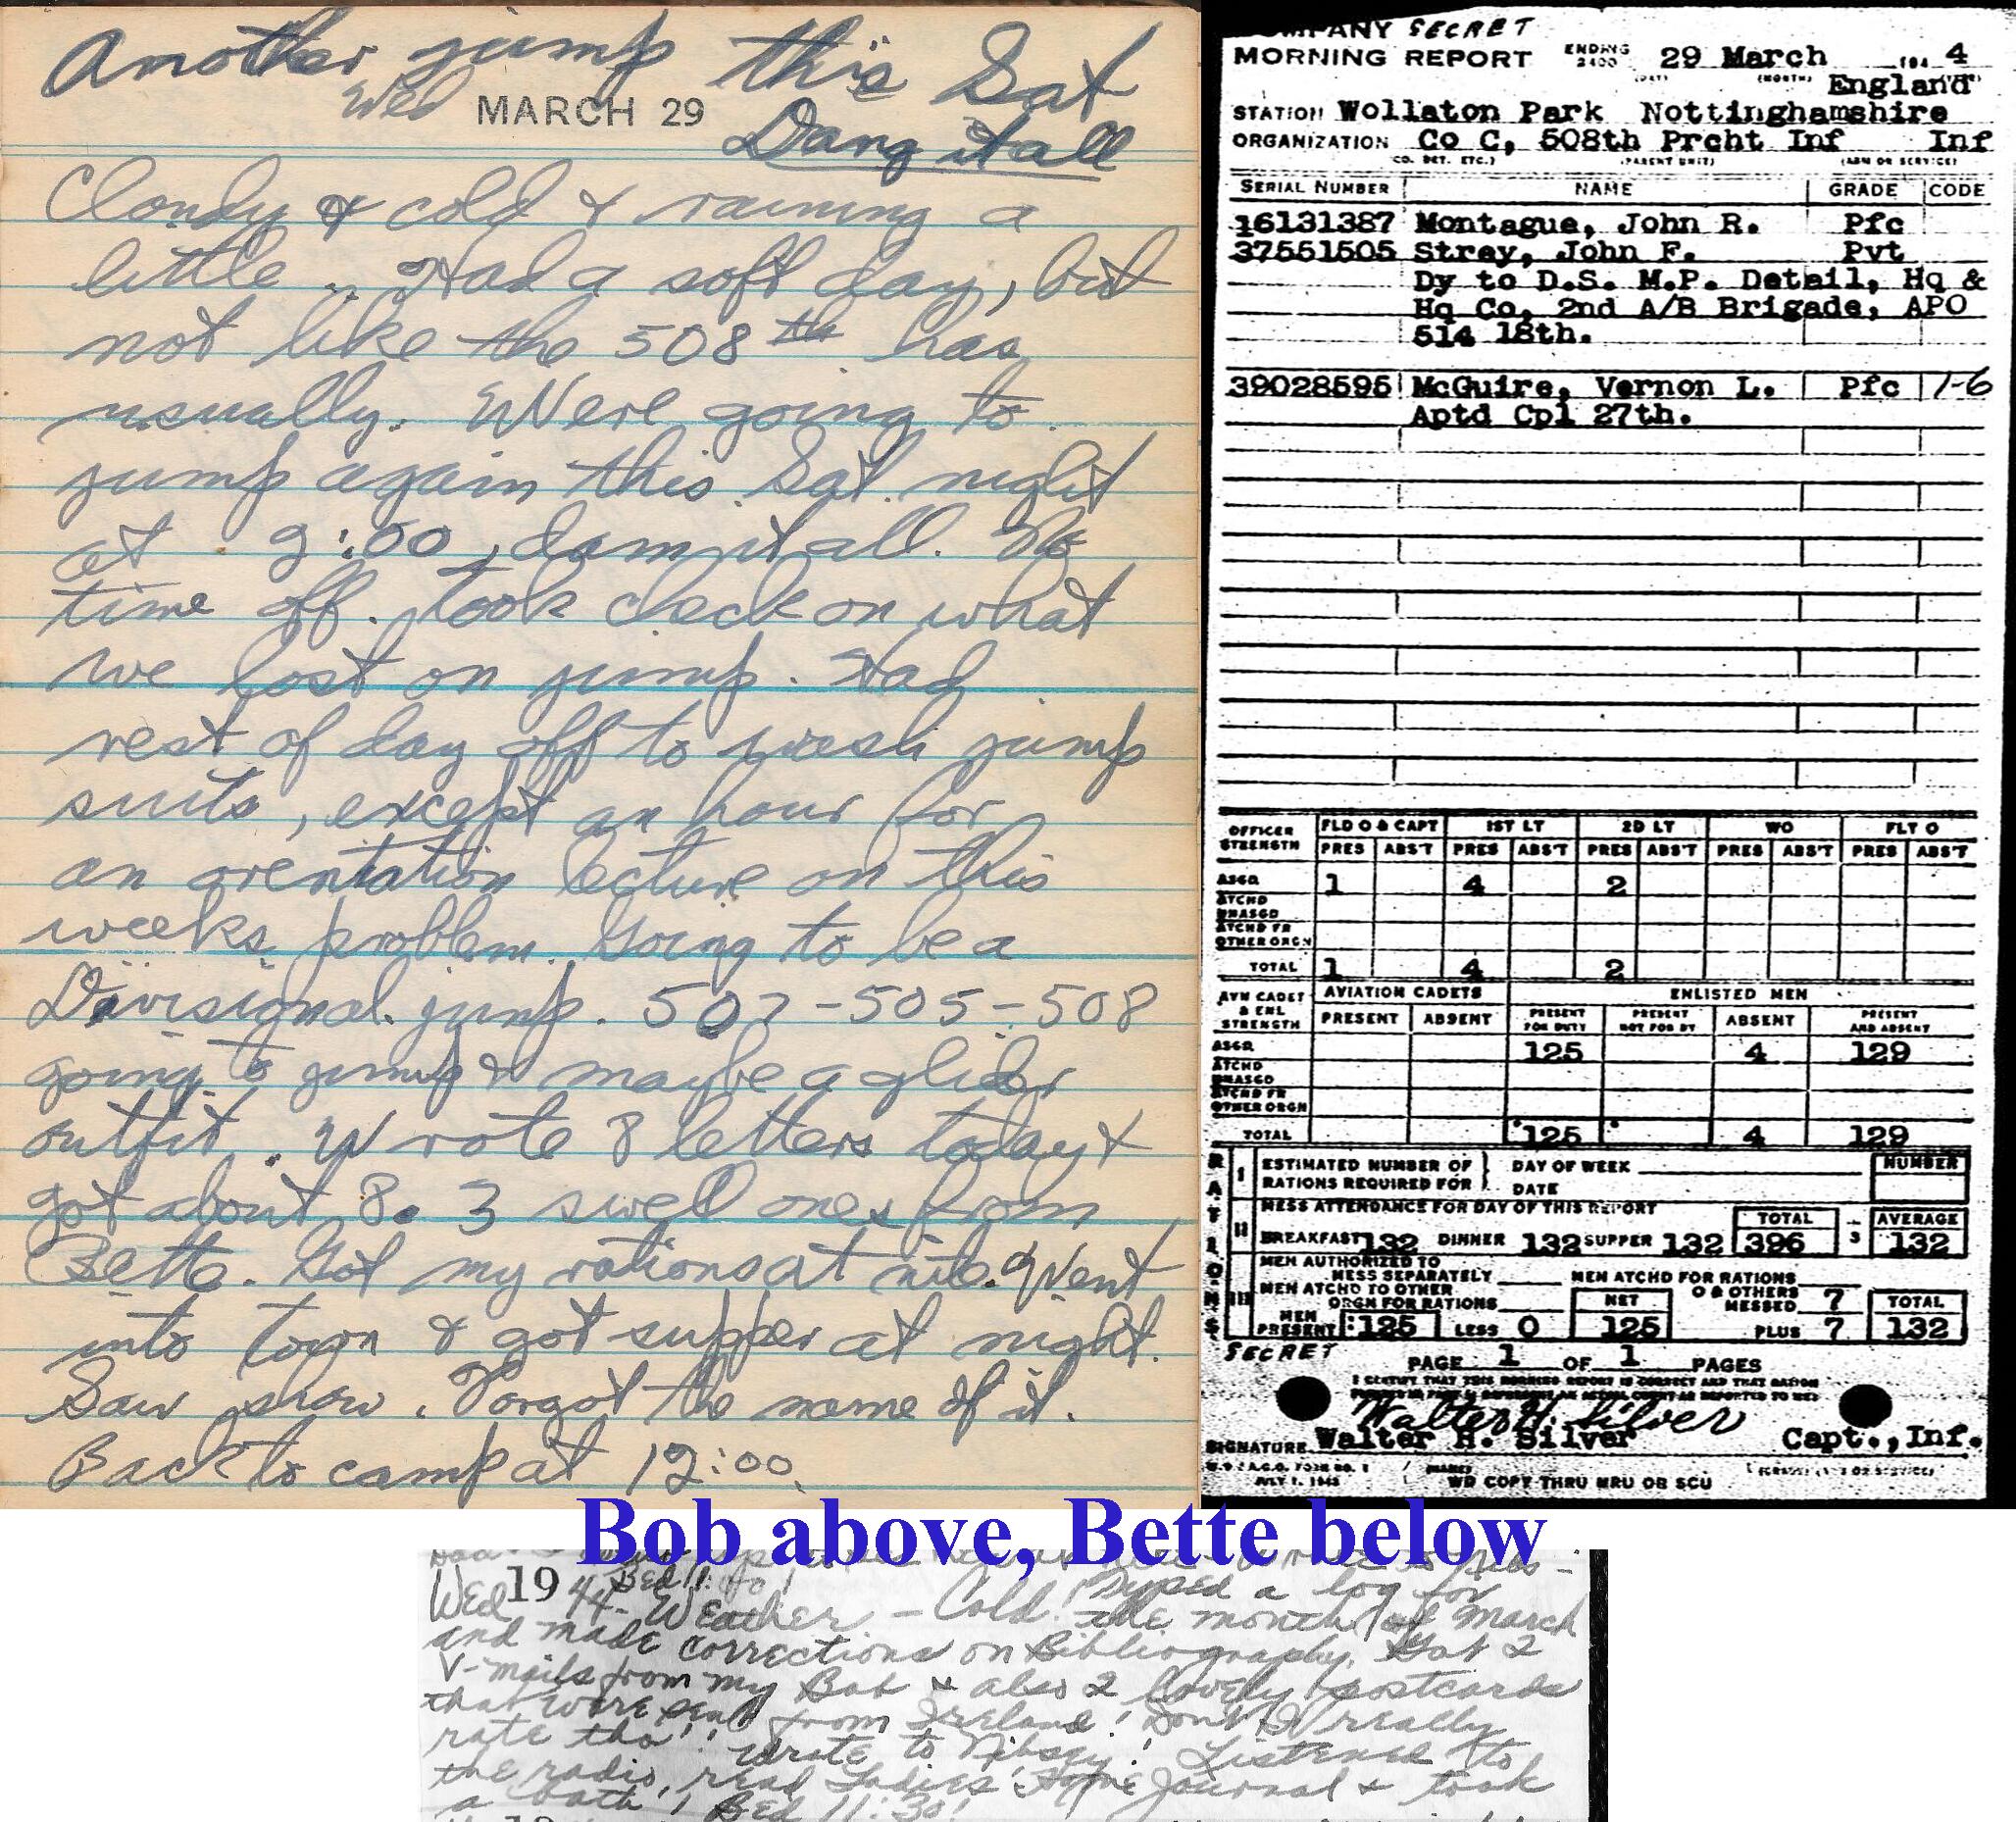 Another jump this Sat
Wed MARCH 29
Dang it all
Cloudy & cold & raining a
little. Had a soft day, but
not like the 508th has
usually. Were going to
jump again this Sat. night
at 9:00, damn it all. No
time off. Took check on what
we lost on jump. Had
rest of day off to wash jump
suits, except an hour for
an orentation lecture on this
weeks problem. Going to be a
Divisional jump. 507-505-508
going to jump & maybe a glider
outfit. Wrote 8 letters today &
got about 8. 3 swell ones from
Bette. Got my rations at nite. Went
into town & got supper at night.
Saw show. Forgot the name of it.
Back to camp at 12:00.
COMPANY SECRET
MORNING REPORT ENDING 2400 29 March 1944
(DAY) (MONTH)
England
STATION Wollaton Park Nottinghamshire
ORGANIZATION Co C, 508th Prcht Inf Inf
(CO. DET. ETC.) (PARENT UNIT) (ARM OR SERVICE)
SERIAL NUMBER NAME GRADE CODE
16131387 Montague, John R. Pfc
37551505 Stray, John F. Pvt
Dy to D.S. M.P. Detail, Hq &
Hq Co, 2nd A/B Brigade, APO
514 18th.
39028595 McGuire, Vernon L. Pfc 1-6
Aptd Cpl 27th.
OFFICER STRENGTH FLD O & CAPT 1ST LT 2D LT WO FLT O
PRES ABS'T PRES ABS'T PRES ABS'T PRES ABS'T PRES ABS'T
ASGD 1 4 2
ATCHD UNASGD
ATCHD FR OTHER ORGN
TOTAL 1 4 2
AVN CADET & ENL STRENGTH AVIATION CADETS ENLISTED MEN
PRESENT ABSENT PRESENT FOR DUTY PRESENT NOT FOR DY ABSENT PRESENT AND ABSENT
ASGD 125 4 129
ATCHD UNASGD
ATCHD FR OTHER ORGN
TOTAL 125 4 129
RATIONS
I ESTIMATED NUMBER OF RATIONS REQUIRED FOR DAY OF WEEK DATE NUMBER
MESS ATTENDANCE FOR DAY OF THIS REPORT TOTAL AVERAGE
II BREAKFAST 132 DINNER 132 SUPPER 132 396 3 132
MEN AUTHORIZED TO MESS SEPARATELY MEN ATCHD FOR RATIONS
III MEN ATCHD TO OTHER ORGN FOR RATIONS NET O & OTHERS MESSED 7 TOTAL
MEN PRESENT 125 LESS 0 125 PLUS 7 132
SECRET
PAGE 1 OF 1 PAGES
I CERTIFY THAT THIS MORNING REPORT IS CORRECT AND THAT RATION
Walter H. Silver
SIGNATURE Walter H. Silver Capt., Inf.
W.D., A.G.O. FORM NO. 1
JULY 1, 1943
WD COPY THRU MRU OR SCU
Bob above, Bette below
Bed 11:40!
Wed 1944 - Weather - Cold! Typed a log for
the month of March
and made corrections on Bibliography. Got 2
V-mails from my Bob & also 2 lovely postcards
that were sent from Ireland! Don't I really
rate tho'! Wrote to Nibsy! Listened to
the radio, read Ladies' Home Journal & took
a bath! Bed 11:30!